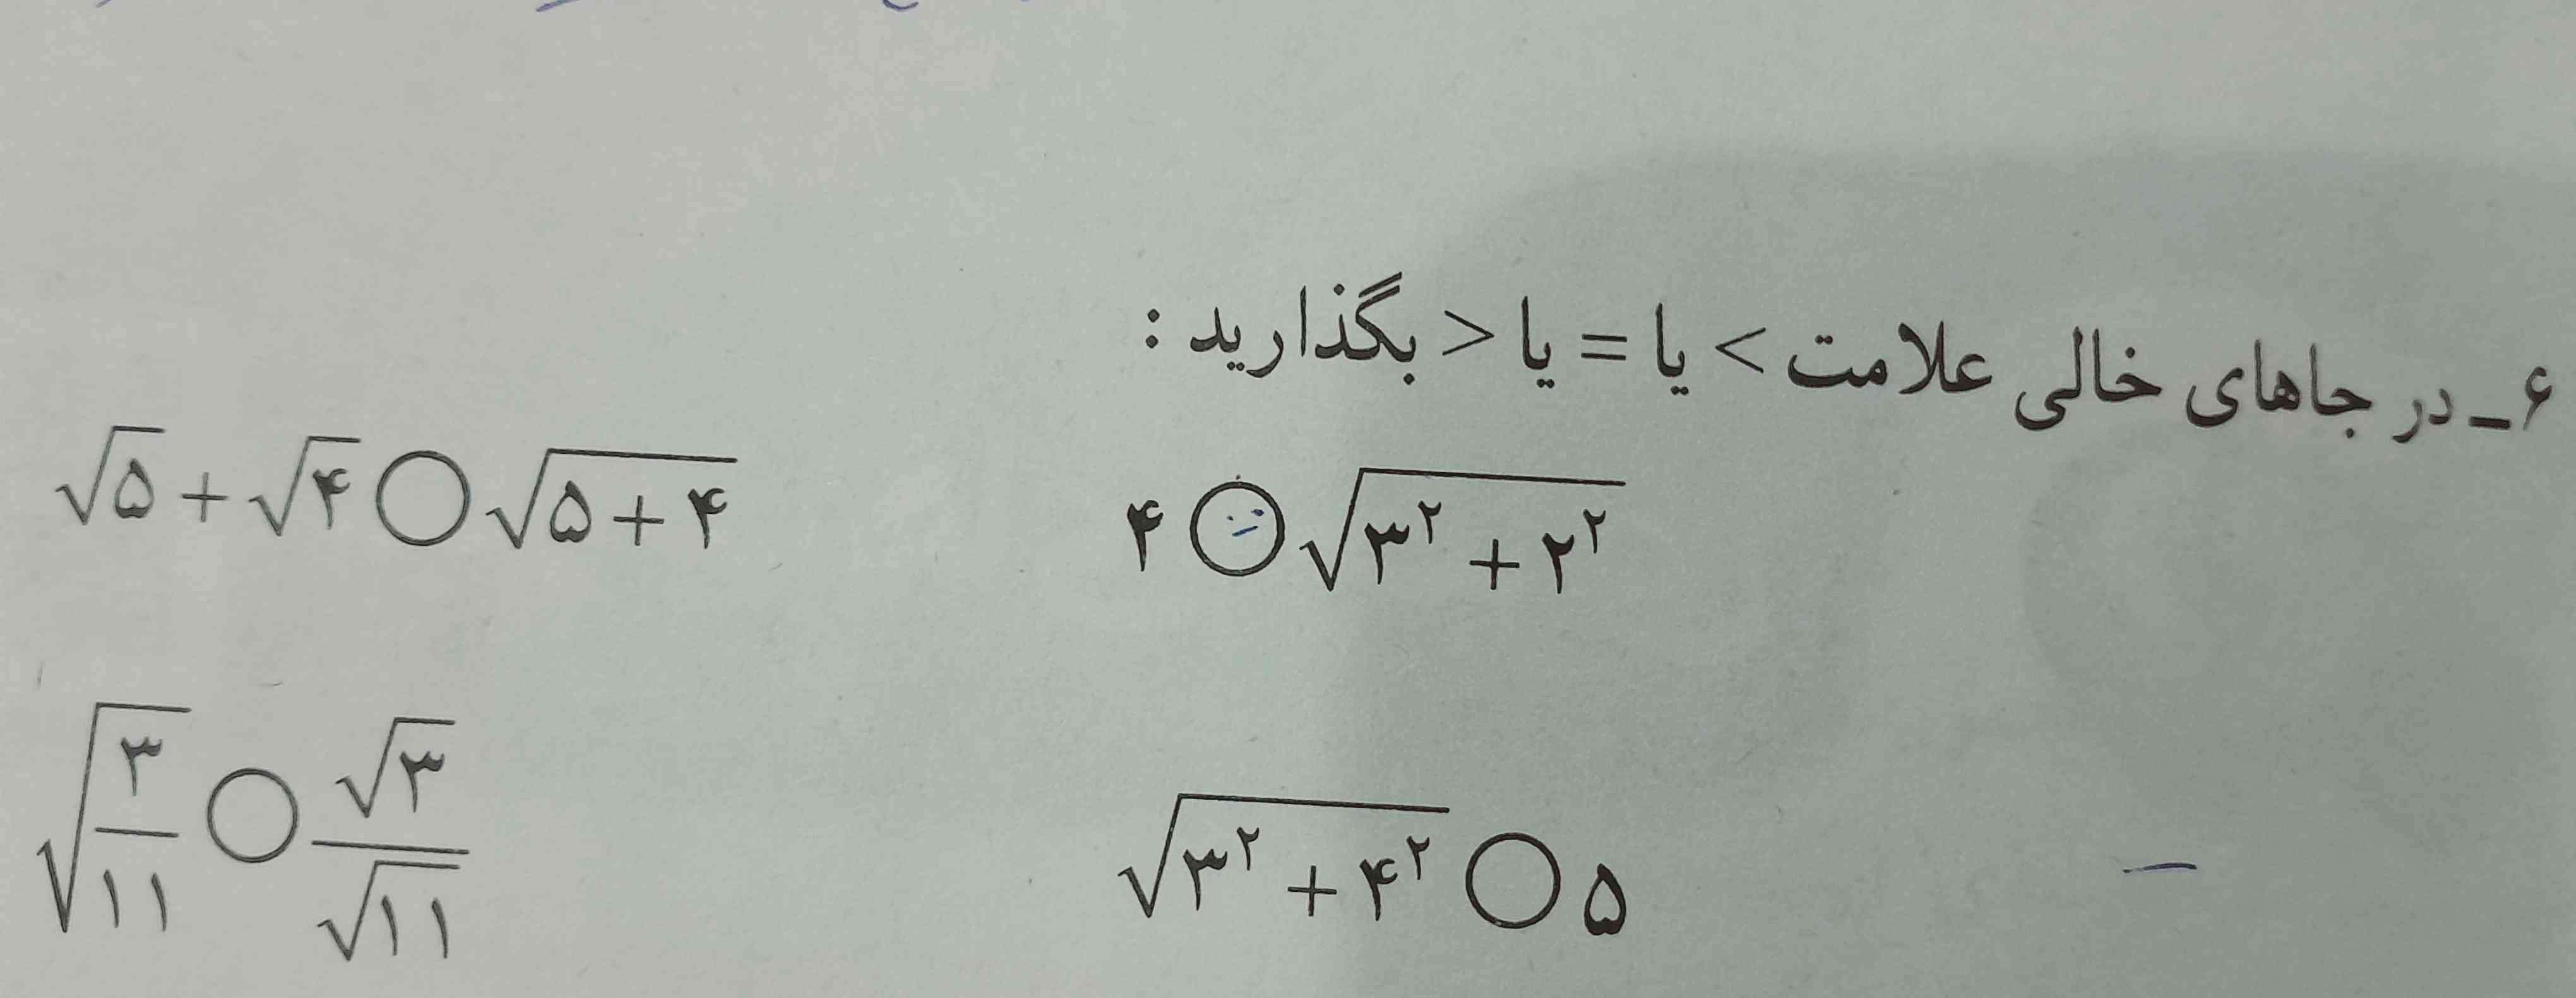 ۶ـ در جاهای خالی علامت < یا = یا > بگذارید :
۴ ○ √(۳² + ۲²)
√۵ + √۴ ○ √(۵ + ۴)
√(۳² + ۴²) ○ ۵
√(۳/۱۱) ○ √۳/√۱۱